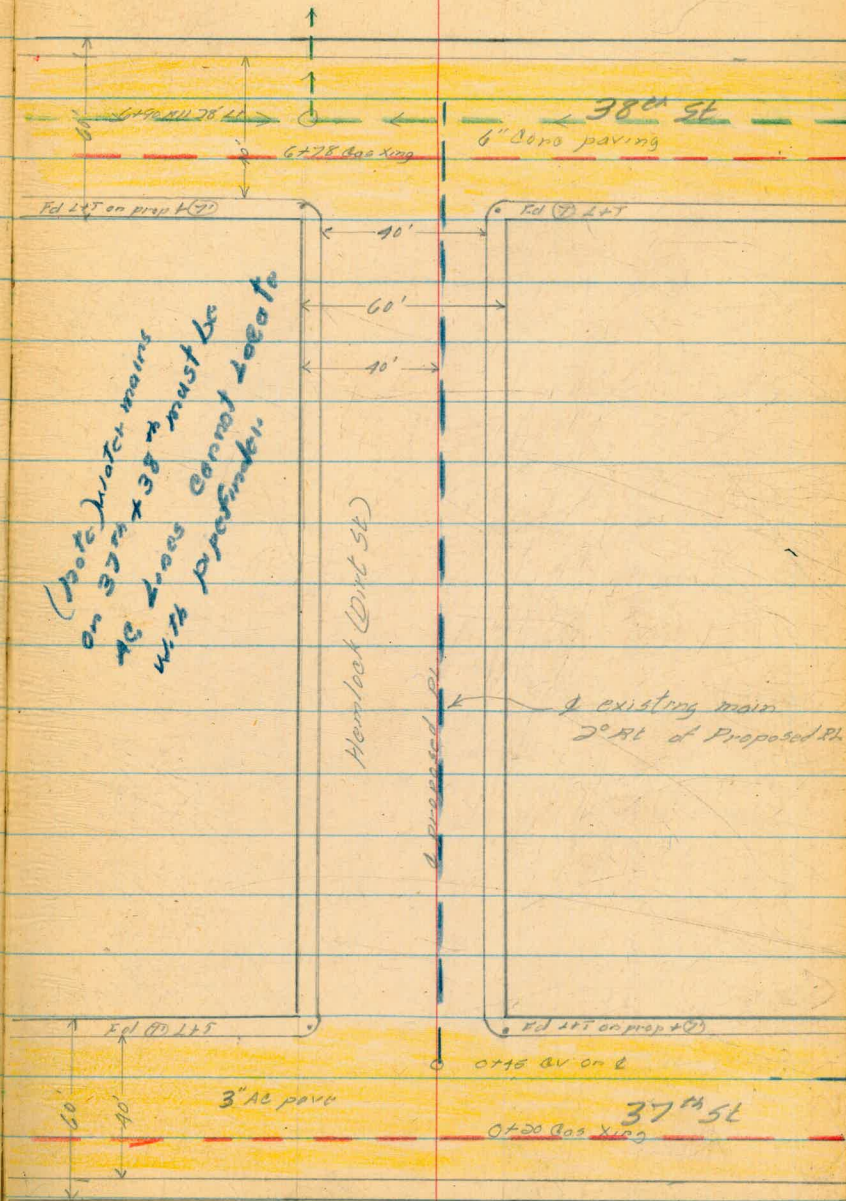 38th St
6" Conc paving
6+78 Gas Xing
60'
40'
Fd L+T on prop
Fd L+T
40'
60'
40'
(Note) Water mains
on 37th + 38th must be
AC Lines Cannot Locate
with pipefinder.
Hemlock (Dirt St)
℄ proposed PL
℄ existing main
Rt of Proposed PL
Fd L+T
Fd L+T on prop
0+45 GV on ℄
3" AC pave
37th St
0+20 Gas Xing
60'
40'